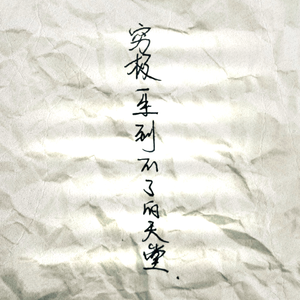 穷极一生到不了的天堂.